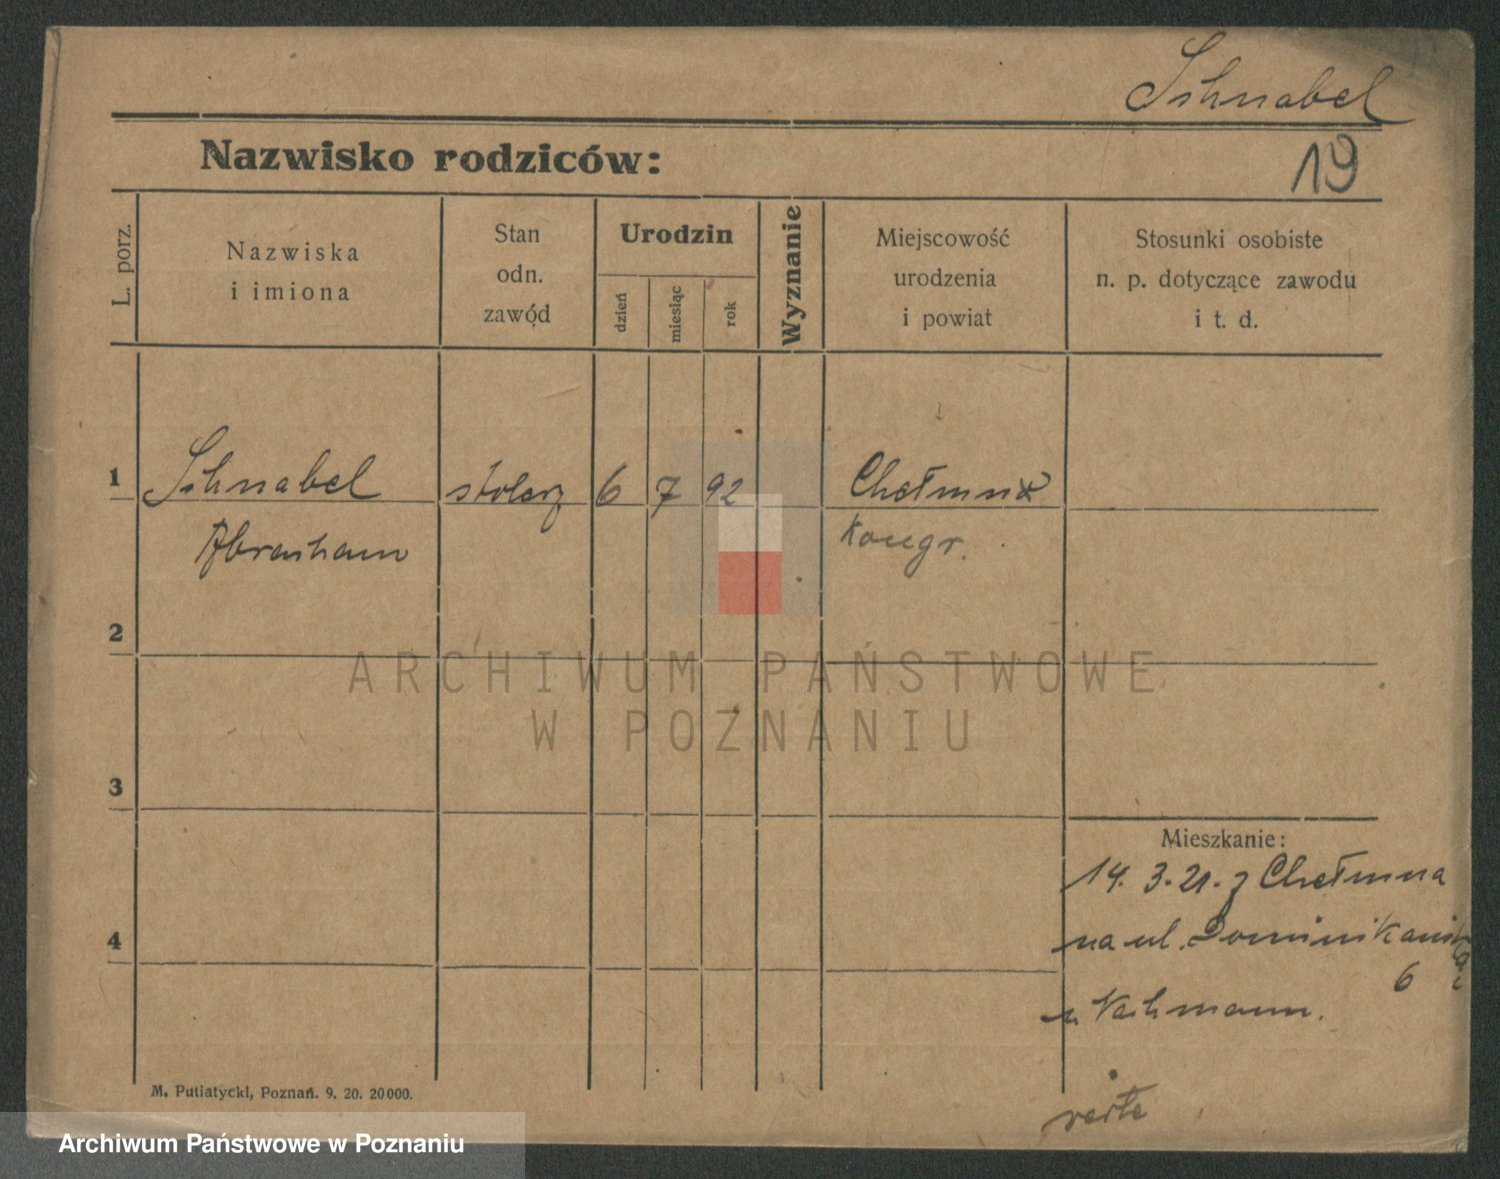 Schnabel
Nazwisko rodziców:
19
L. porz.
Nazwiska
i imiona
Stan
odn.
zawód
Urodzin
dzień
miesiąc
rok
Wyznanie
Miejscowość
urodzenia
i powiat
Stosunki osobiste
n. p. dotyczące zawodu
i t. d.
1 Schnabel stolarz 6 7 92 Chełmna
Abraham Kongr.
2
3
4
Mieszkanie:
14. 3. 21. z Chełmna
na ul. Dominikańska
6
u Nachmann.
M. Putiatycki, Poznań. 9. 20. 20 000.
ARCHIWUM PAŃSTWOWE
W POZNANIU
Archiwum Państwowe w Poznaniu